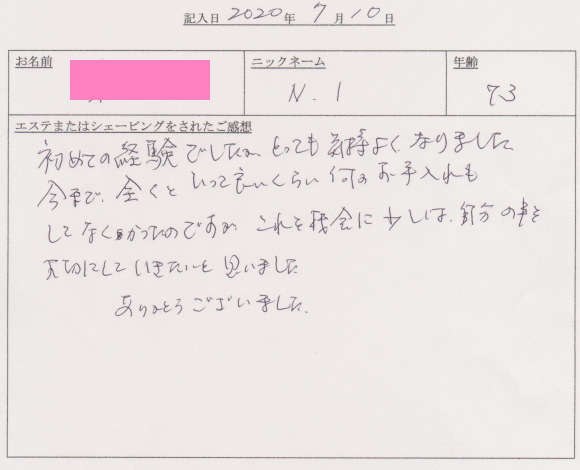 記入日 2020年 7月 10日
お名前 ニックネーム 年齢
N. I 73
エステまたはシェービングをされたご感想
初めての経験でしたが、とっても気持よくなりました
今まで、全くといって良いくらい何のお手入れも
してなくかったのですが これを機会に少しは、自分の事を
大切にしていきたいと思いました
ありがとうございました.